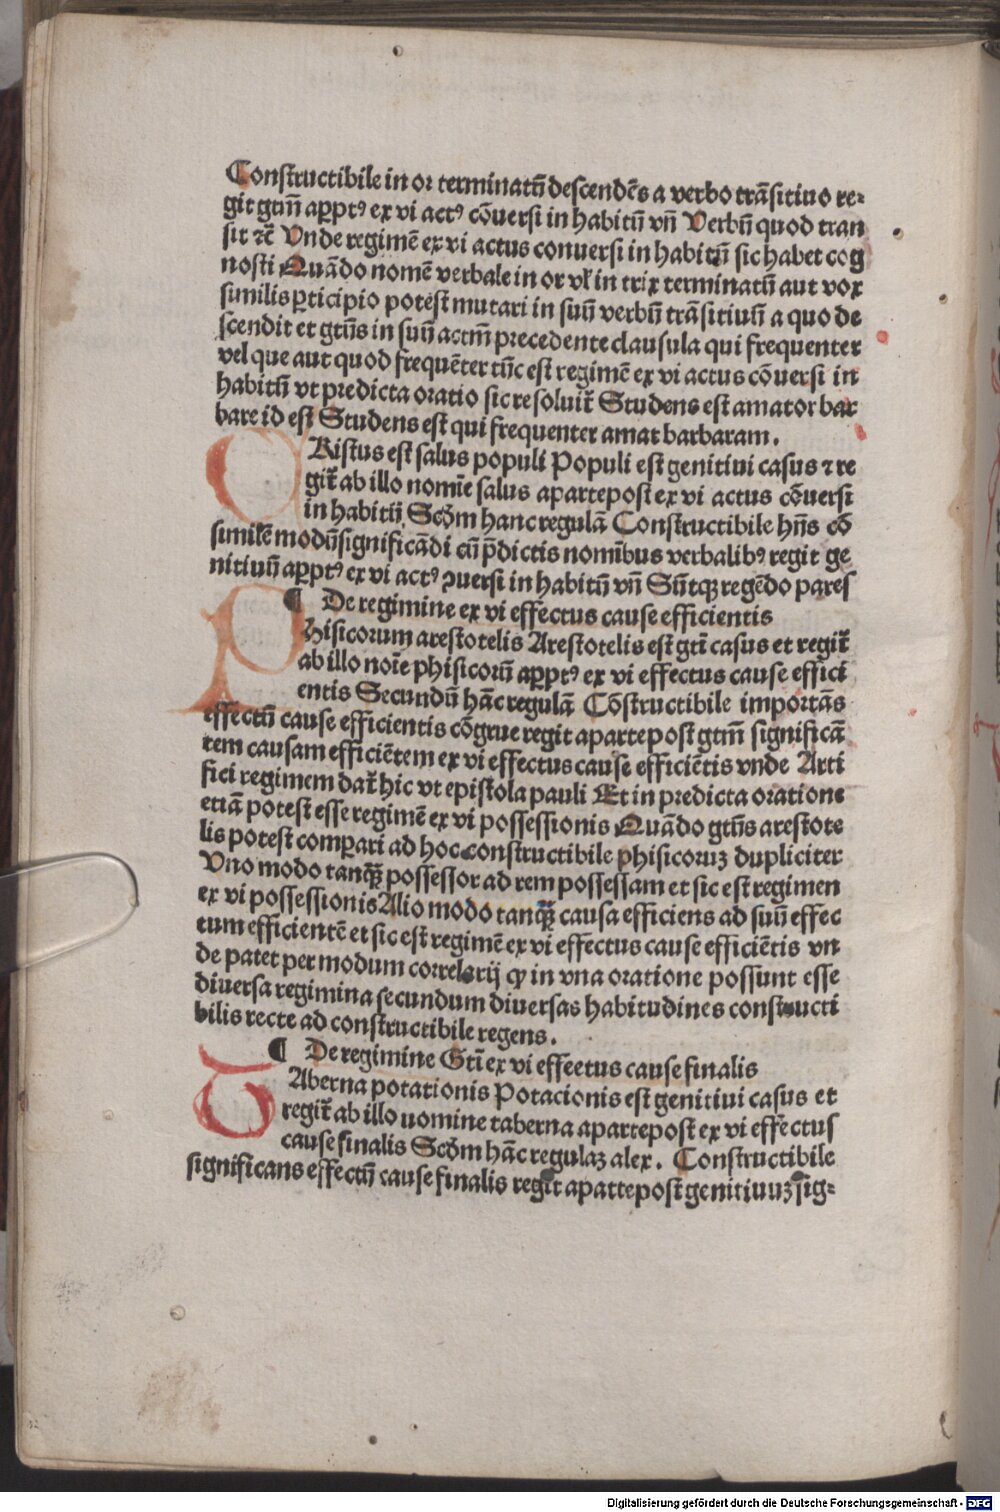 Constructibile in or terminatū descendēs a verbo trāsitiuo re-
git gtm̄ aꝑptꝰ ex vi actꝰ cōuersi in habitū vn̄ Verbū quod tran
sit ⁊c̄ Vnde regimē ex vi actus conuersi in habitū sic habet cog
nosti Quādo nomē verbale in or vl̓ in trix terminatū aut vox
similis ꝑticipio potest mutari in suū verbū trāsitiuū a quo de
scendit et gtūs in suū actm̄ precedente clausula qui frequenter
vel que aut quod frequēter tūc est regimē ex vi actus cōuersi in
habitū vt predicta oratio sic resoluit̄ Studens est amator bar
bare id est Studens est qui frequenter amat barbaram.
Ristus est salus populi Populi est genitiui casus ⁊ re
git̄ ab illo nomīe salus apartepost ex vi actus cōuersi
in habitū Scḋm hanc regulā Constructibile hn̄s cō
similē modū significādi cū p̄dictis nomībus verbalibꝰ regit ge
nitiuū aꝑptꝰ ex vi actꝰ ꝯuersi in habitū vn̄ Sūtqꝫ regēdo pares
¶ De regimine ex vi effectus cause efficientis
Phisicorum arestotelis Arestotelis est gtī casus et regit̄
ab illo noīe phisicorū aꝑptꝰ ex vi effectus cause effici
entis Secundū hāc regulā Cōstructibile importās
effectū cause efficientis cōgrue regit apartepost gtm̄ significā
tem causam efficiētem ex vi effectus cause efficiētis vnde Arti
fici regimem dat̄ hic vt epistola pauli Et in predicta oratione
etiā potest esse regimē ex vi possessionis Quādo gtūs arestote
lis potest comꝑari ad hoc constructibile phisicoruꝫ dupliciter
Vno modo tanqꝫ̄ possessor ad rem possessam et sic est regimen
ex vi possessionis Alio modo tanqꝫ̄ causa efficiens ad suū effec
tum efficientē et sic est regimē ex vi effectus cause efficiētis vn
de patet per modum correlarij ꝙ in vna oratione possunt esse
diuersa regimina secundum diuersas habitudines constructi
bilis recte ad constructibile regens.
¶ De regimine Gtī ex vi effeetus cause finalis
TAberna potationis Potacionis est genitiui casus et
regit̄ ab illo uomine taberna apartepost ex vi effectus
cause finalis Scḋm hāc regulaꝫ alex. Constructibile
significans effectū cause finalis regit apartepost genitiuuꝫ sig-
Digitalisierung gefördert durch die Deutsche Forschungsgemeinschaft - DFG